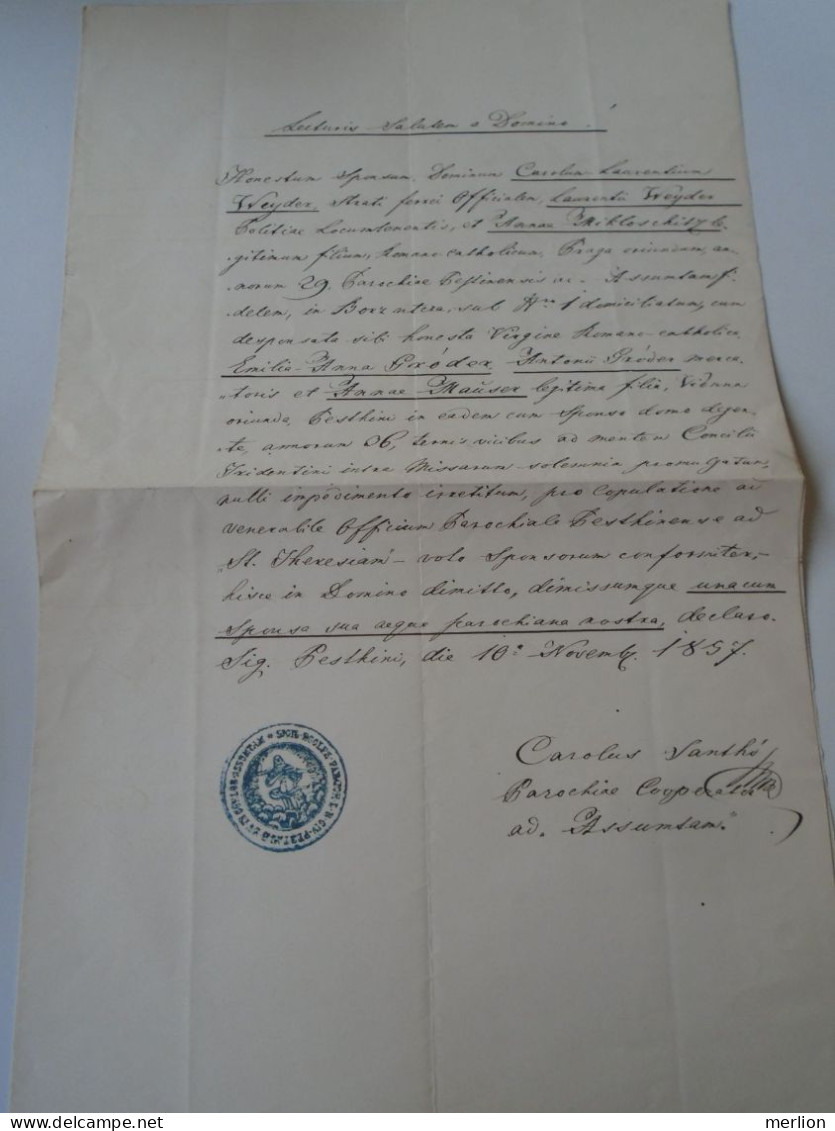 Lecturis Salutem a Domino!
Honestum Sponsum, Dominum Carolum Laurentium
Weyder, strati ferrei Officialem, Laurentii Weyder
Politiae Locumtenentis, et Annae Mikloschitz le-
gitimum filium, Romano-catholicum, Praga oriundum, an-
norum 29. Parochiae Pestinensis ad Assumtam fi-
delem, in domiciliatum, cum
desponsata sibi honesta Virgine Romano-catholica
Emilia Anna Gröder Antonii Gröder merca-
toris et Annae Mauser legitima filia, Vienna
oriunda, Pesthini in eadem cum Sponso domo degen-
te, annorum 26, ternis vicibus ad mentem Concilii
Tridentini intra Missarum solemnia promulgatum,
nulli impedimento irretitum, pro copulatione ad
venerabile Officium Parochiale Pesthinense ad
"St. Theresiam" voto Sponsorum conformiter,-
hisce in Domino dimitto, dimissumque unacum
Sponsa sua aeque parochiana nostra, declaro.
Sig. Pesthini, die 10ª Novemb. 1857.
Carolus Santhó
Parochiae Cooperator
ad "Assumtam"
merlion